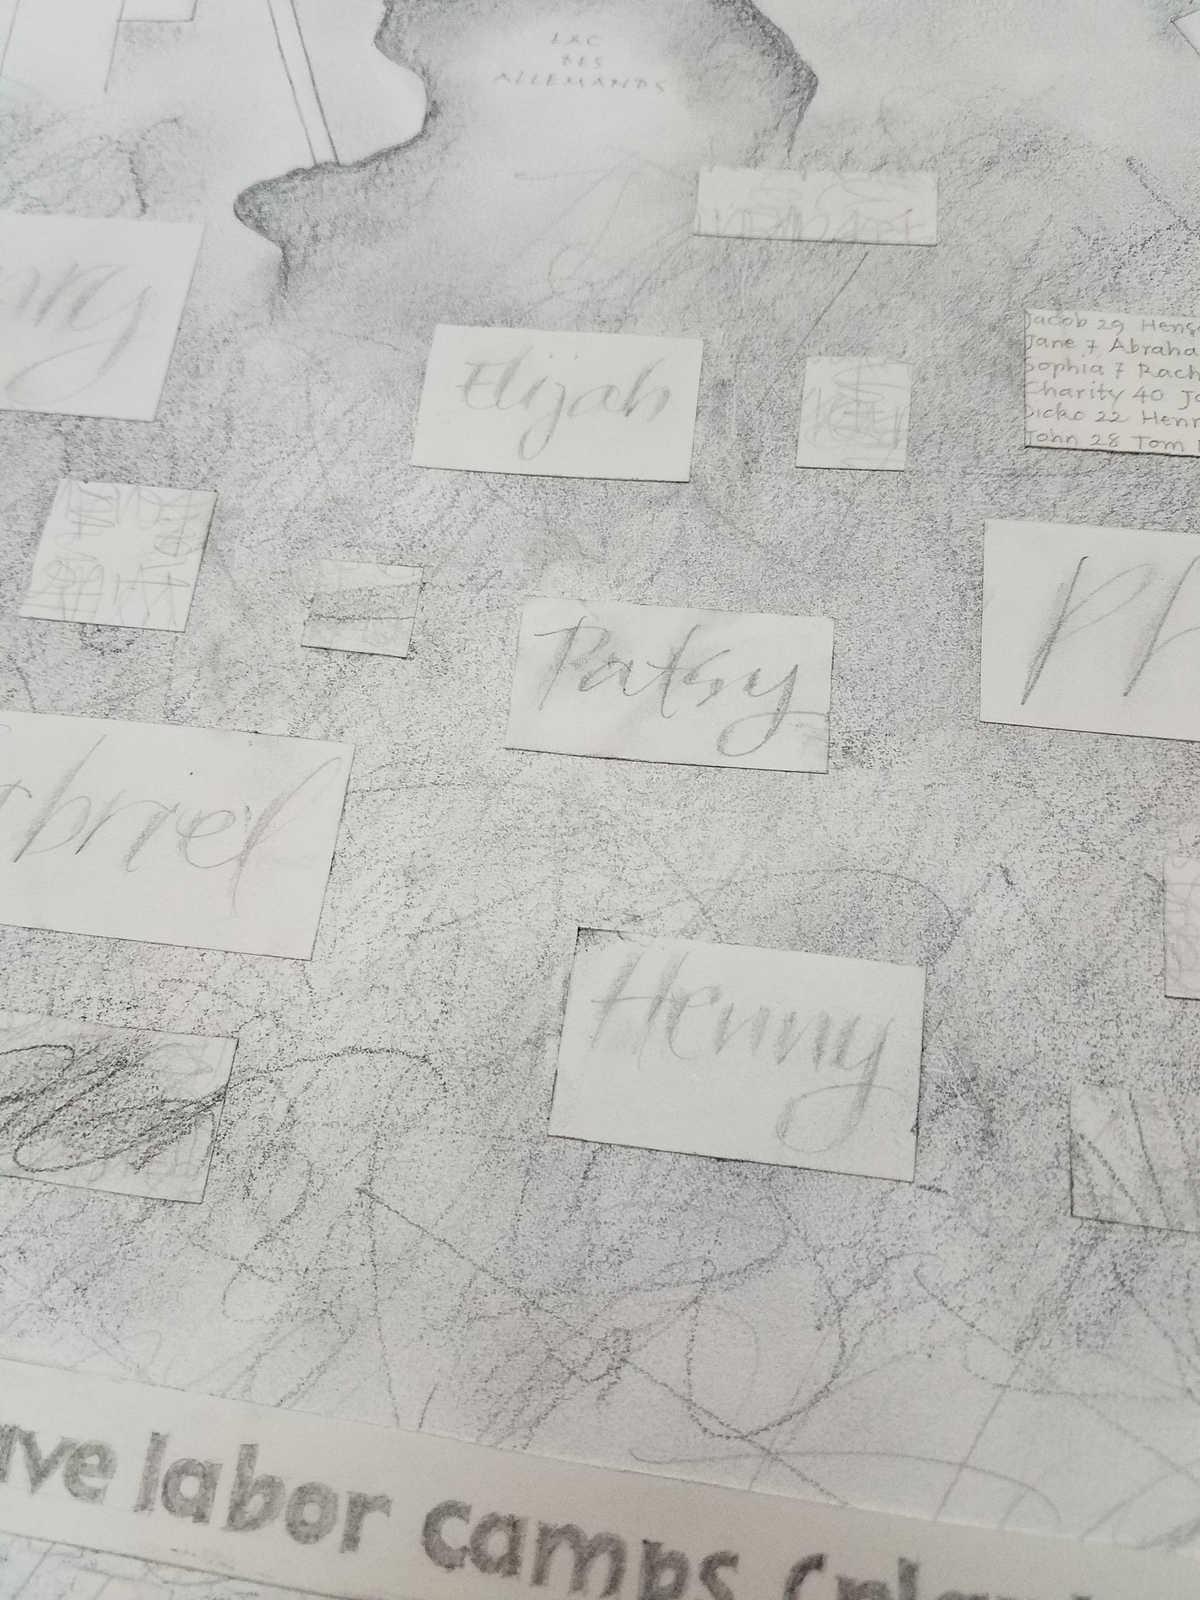 LAC
DES
ALLEMANDS
Elijah
Jacob 29 Hens
Jane 7 Abraha
Sophia 7 Rach
Charity 40 Jo
Dicko 22 Henr
John 28 Tom
Patsy
Ph
briel
Henny
ave labor camps (pla